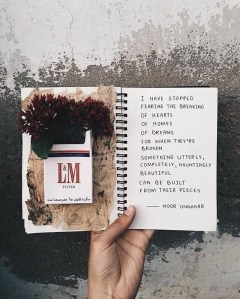 L&M
FILTER
I HAVE STOPPED
FEARING THE BREAKING
OF HEARTS
OF HOMES
OF DREAMS
FOR WHEN THEY'RE
BROKEN
SOMETHING UTTERLY,
COMPLETELY, HAUNTINGLY
BEAUTIFUL
CAN BE BUILT
FROM THEIR PIECES
NOOR UNNAHAR